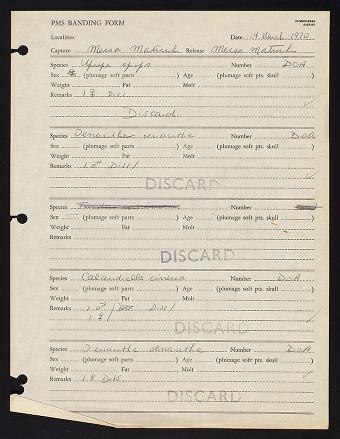 PMS BANDING FORM
Localities Date 14 March 1970
Capture Mersa Matruh Release Mersa Matruh
Species Upupa epops Number DOA
Sex ♀ (plumage soft parts ) Age (plumage soft pts. skull )
Weight Fat Molt
Remarks 1 ♀ Disc
Discard
Species Oenanthe oenanthe Number DOA
Sex (plumage soft parts ) Age (plumage soft pts. skull )
Weight Fat Molt
Remarks 1 ♂ Disc/
DISCARD
Species Number
Sex (plumage soft parts ) Age (plumage soft pts. skull )
Weight Fat Molt
Remarks
DISCARD
Species Calandrella cinerea Number DOA
Sex (plumage soft parts ) Age (plumage soft pts. skull )
Weight Fat Molt
Remarks 1 ♂/ Disc/
1 ♀/
DISCARD
Species Oenanthe oenanthe Number DOA
Sex (plumage soft parts ) Age (plumage soft pts. skull )
Weight Fat Molt
Remarks 1 ♀ Disc.
DISCARD